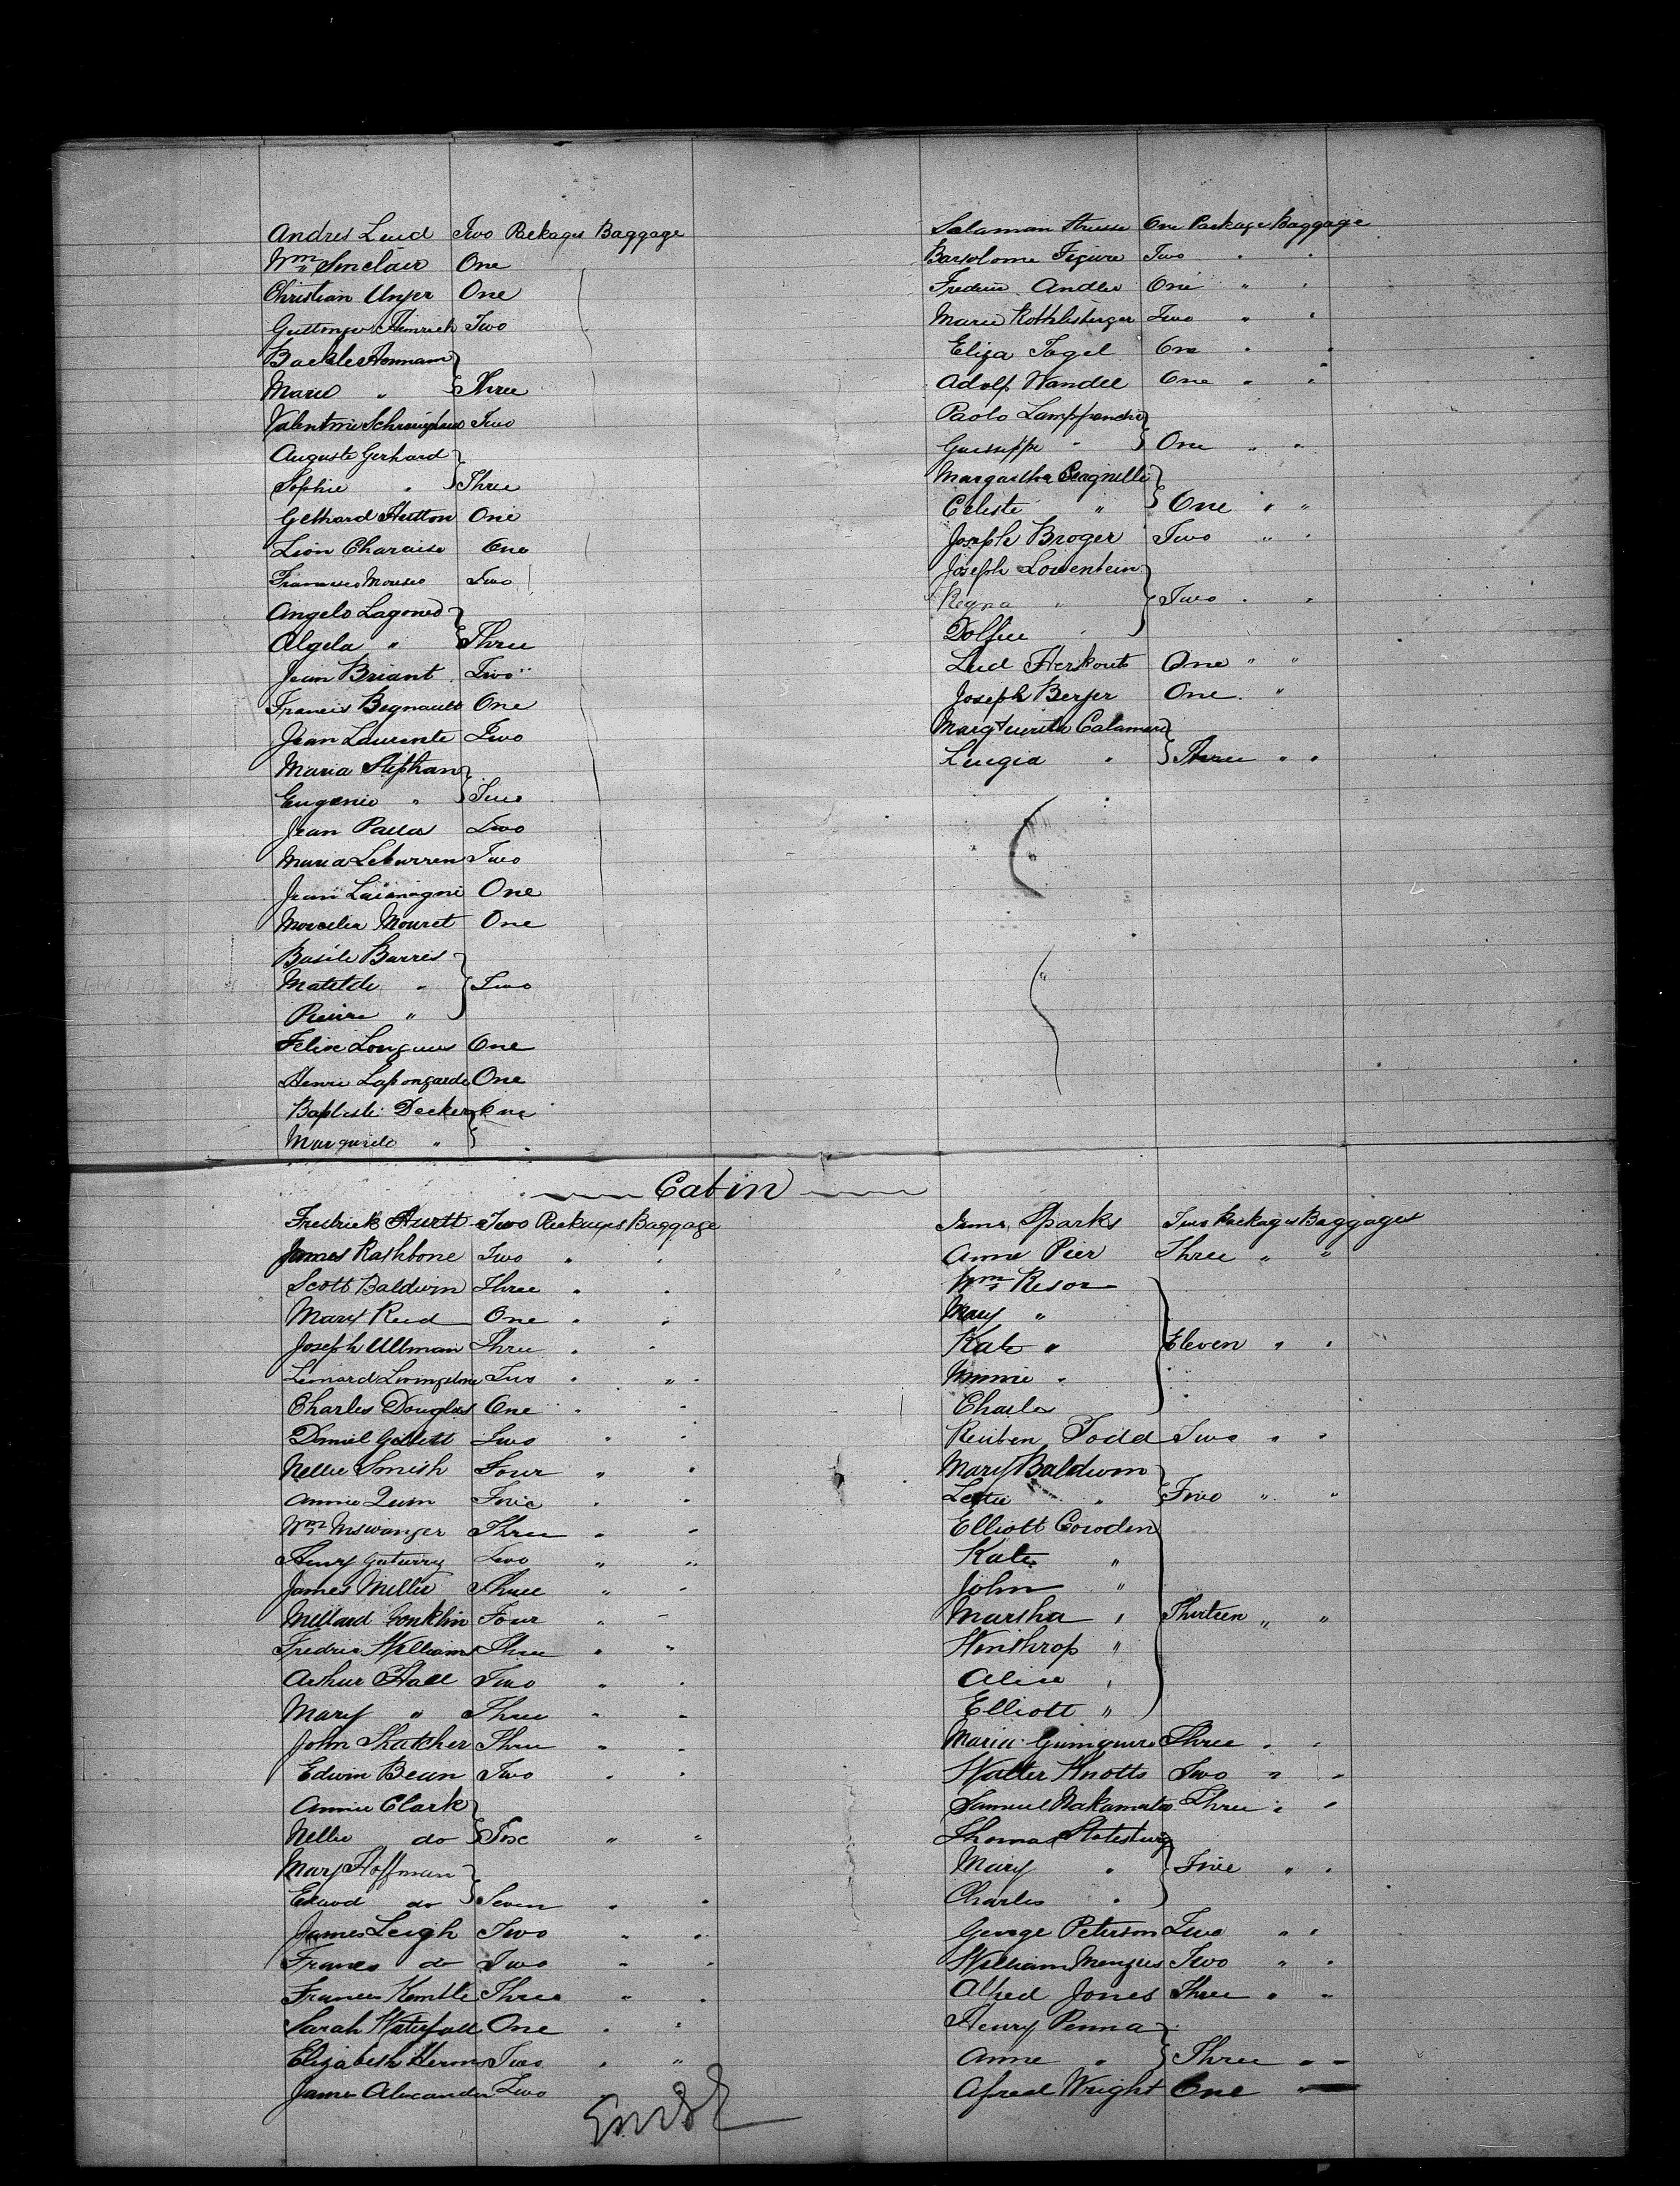 Andres Luid Two Packages Baggage
Wm Sinclair One
Christian Unger One
Guttinger Heinrich Two
Backler Hermam
Marie " Three
Valentine Two
Auguste Gerhard
Sophie " Three
Gebhard Hutton One
Lion Charaise One
Francesco Two
Angelo Lagomo
Algela " Three
Jean Briant Two
Francis Regnault One
Jean Laurente Two
Maria Stephan
Eugenie " Two
Jean Pallas Two
Maria Leburren Two
Jean One
Mouret One
Basile Barres
Matilde " Two
Pierre "
Felix Longues One
Henri Lapongarde One
Baptiste Decker One
Margurite "
Salaman Strusse One Package Baggage
Bartolome Figure Two " "
Frederic Andler One " "
Marie Rothlisberger Two " "
Eliza Togel One " "
Adolf Wandel One " "
Paolo
Guiseppe " One " "
Margaretha
Celeste " One " "
Joseph Broger Two " "
Joseph Lowentein
Regna " Two " "
Dolfice "
Lud Herskouts One " "
Joseph Berger One "
Calamari
Luigia " Three " "
Cabin
Fredrick Hurtt Two Packages Baggage
James Rathbone Two " "
Scott Baldwin Three " "
Mary Reed One " "
Joseph Ullman Three " "
Leonard Livingstone Two " "
Charles Douglas One " "
Daniel Gillett Two " "
Nellie Smith Four " "
Annie Quin Five " "
Wm Three " "
Henry Two " "
James Miller Three " "
Millard Conklin Four " "
Fredric Williams Three " "
Arthur Hall Two " "
Mary " Three " "
John Thatcher Three " "
Edwin Bean Two " "
Annie Clark
Nellie do " "
Mary Hoffman
do Seven " "
James Leigh Two " "
Frances do Two " "
Frances Kemble Three " "
Sarah Waterfall One " "
Elizabeth Two " "
James Alexander Two
James Sparks Two Packages Baggages
Anne Pier Three " "
Wm Resor
Mary "
Kate " Eleven " "
Minnie "
Charles
Reuben Todd Two " "
Mary Baldwin
" Five " "
Elliott Cowden
Kate "
John "
Marsha " Thirteen " "
Winthrop "
Alice "
Elliott "
Maria Three " "
Walter Knotts Two " "
Samuel Nakamato Three " "
Thomas Stotesburg
Mary " Five " "
Charles "
George Peterson Two " "
William Menzies Two " "
Alfred Jones Three " "
Henry Penna
Anne " Three " "
Afread Wright One "